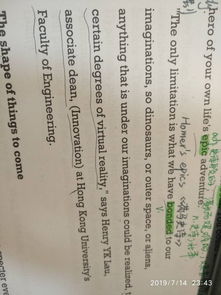 hero of your own life's epic adventur
"The only limitation is what we have bonded to our
imaginations, so dinosaurs, or outer space, or aliens,
anything that is under our imaginations could be realized, t
certain degrees of virtual reality," says Henry YK Lau,
associate dean, (Innovation) at Hong Kong University's
Faculty of Engineering.
The shape of things to come
Homer's epics
2019/7/14 23:43